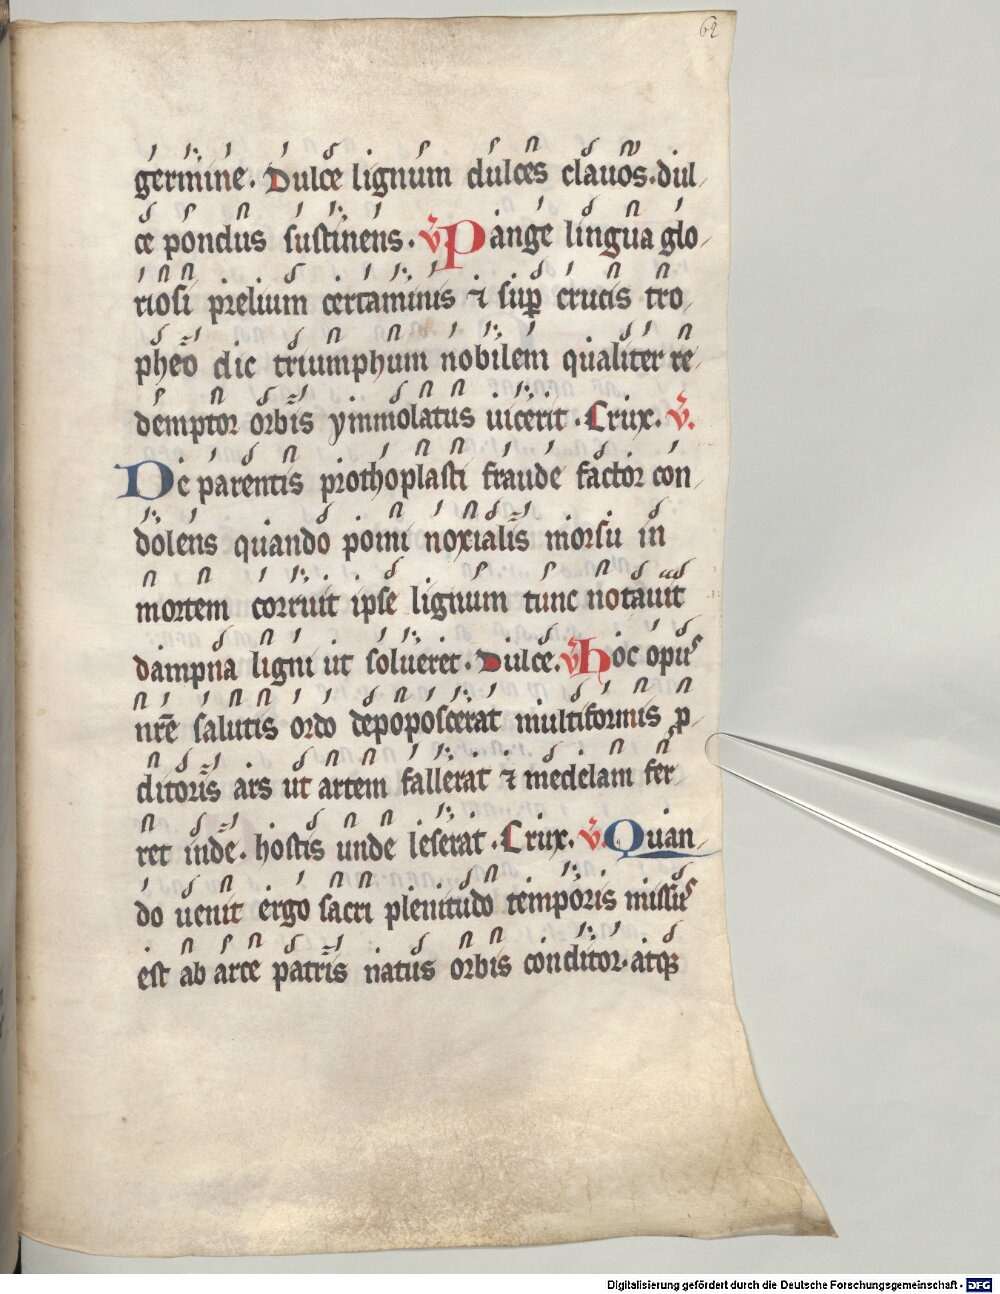 62
germine. Dulce lignum dulces clauos. dul
ce pondus sustinens. v̄ Pange lingua glo
riosi prelium certaminis ⁊ suꝑ crucis tro
pheo dic triumphum nobilem qualiter re
demptor orbis ymmolatus uicerit. Crux. v̄.
De parentis prothoplasti fraude factor con
dolens quando pomi noxialis morsu in
mortem corruit ipse lignum tunc notauit
dampna ligni ut solueret. Dulce. v̄ hoc opuꝰ
nr̄e salutis ordo depoposcerat multiformis ꝓ
ditoris ars ut artem falleret ⁊ medelam fer
ret inde. hostis unde leserat. Crux. v̄. Quan
do uenit ergo sacri plenitudo temporis missuꝰ
est ab arce patris natus orbis conditor. atqꝫ
Digitalisierung gefördert durch die Deutsche Forschungsgemeinschaft - DFG